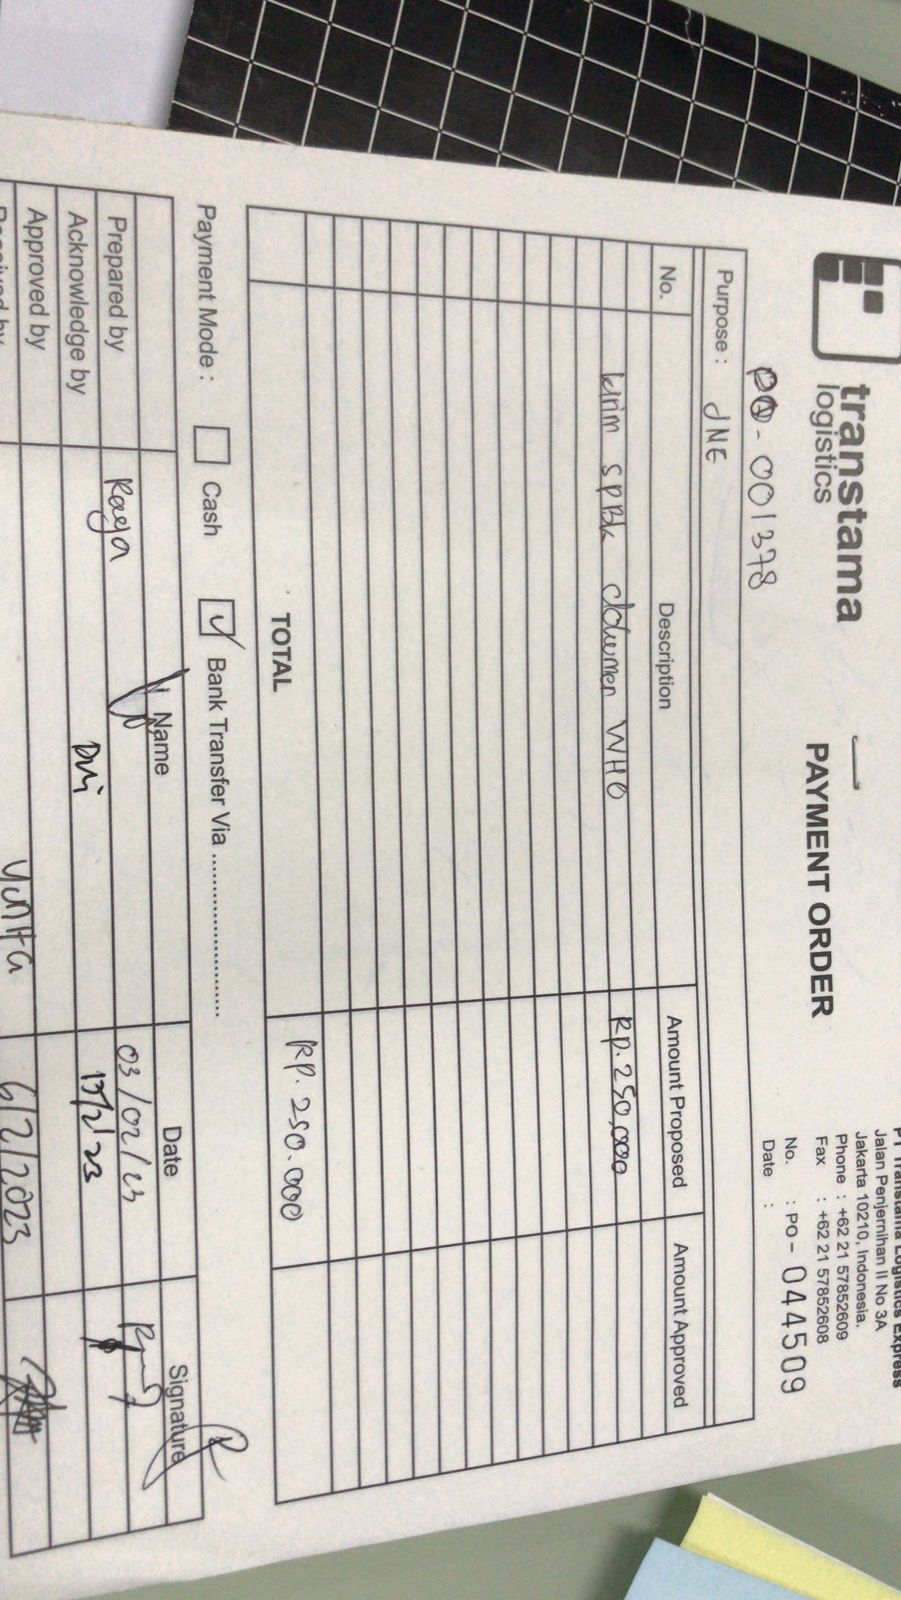 transtama
logistics
PAYMENT ORDER
PT Transtama Logistics Express
Jalan Penjernihan II No 3A
Jakarta 10210, Indonesia.
Phone : +62 21 57852609
Fax : +62 21 57852608
No. : PO - 044509
Date :
PO - 001378
Purpose : JNE
No. Description Amount Proposed Amount Approved
kirim dokumen WHO Rp. 250,000
TOTAL Rp. 250.000
Payment Mode : Cash ✓ Bank Transfer Via ....................
Name Date Signature
Prepared by Raya 03/02/23
Acknowledge by Dwi 13/2/23
Approved by Yunita 6/2/2023
Received by